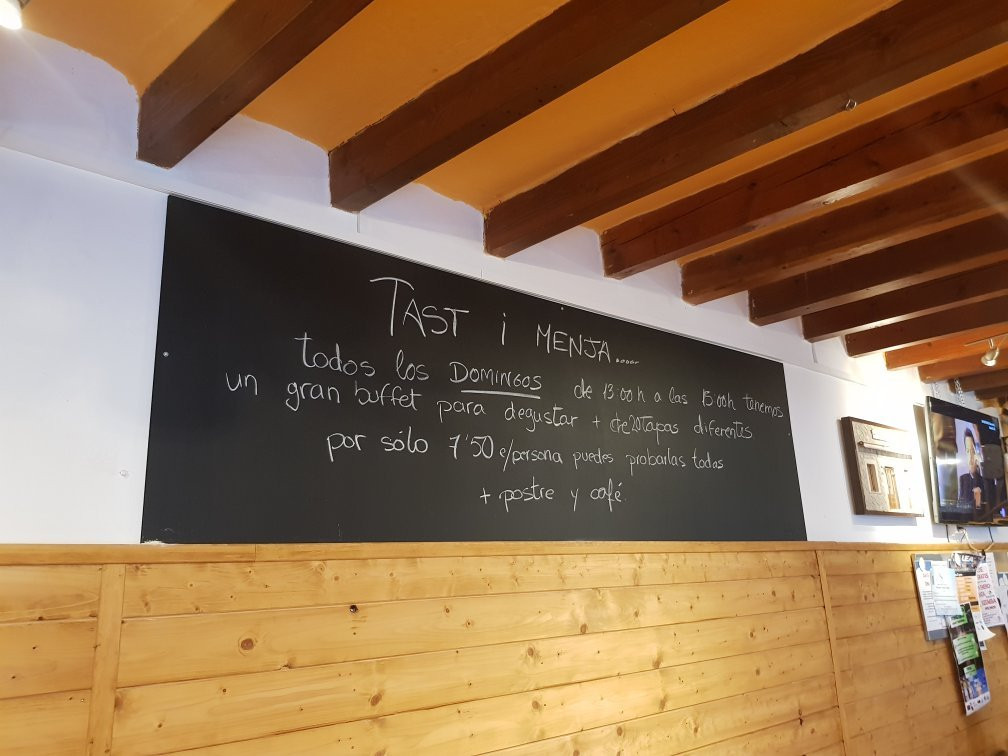 TAST i MENJA.....
todos los DOMINGOS de 13:00h a las 15:00h tenemos
un gran buffet para degustar + de 20 tapas diferentes
por sólo 7'50 €/persona puedes probarlas todas
+ postre y café